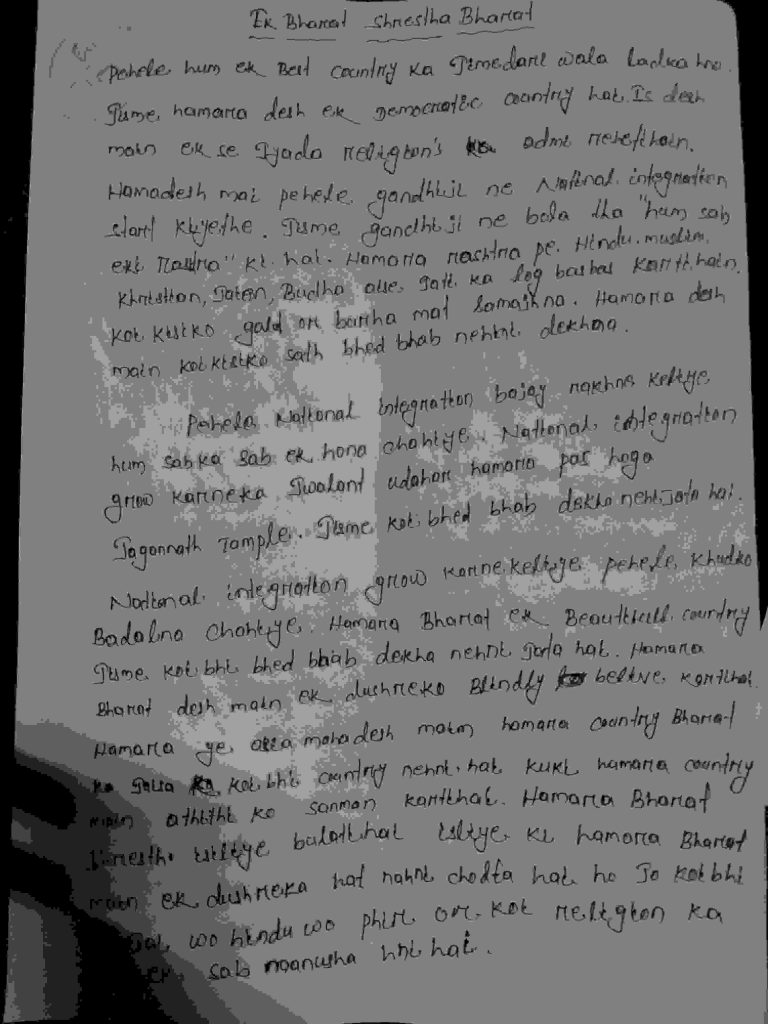 Ek Bharat Shrestha Bharat
Pehele hum ek Best country ka Jimedari wala ladka hno.
Jisme hamara desh ek Democratic country hai. Is desh
main ek se Jyada religion's ka admi rehethain.
Hamadesh mai pehele gandhiji ne National integration
start kiyethe. Jisme gandhiji ne bola tha "hum sab
eki Rastra" ki hai. Hamara rashtra pe. Hindu, muslim,
Khristian, Jaien, Budha aise, Jati ka log bashas karithain.
koi kisiko gald or burha mat samajhna. Hamara desh
main koi kisiko sath bhed bhab nehni dekhna.
Pehela National integration bajay rakhne keliye
hum sabka sab ek hona chahiye. National integration
grow karneka Jwalant udahar hamara pas hoga
Jagannath Temple. Jisme koi bhed bhab dekha nehi jata hai.
National integration grow karne keliye pehele khudko
Badalna chahiye. Hamara Bharat ek Beautifull country
Jisme koi bhi bhed bhab dekha nehni Jata hai. Hamara
Bharat desh main ek dushreko Blindly belive karithai.
Hamara ye mahadesh main hamara country Bharat
ka Jaisa koi bhi country nehni hai kuki hamara country
main athithi ko sanman karithai. Hamara Bharat
isliye bulathai isliye ki hamara Bharat
main ek dushreka hat nahni chodta hai ho Jo koi bhi
Jai, wo hindu wo phiri or koi religion ka
ek sab manusha hni hai.